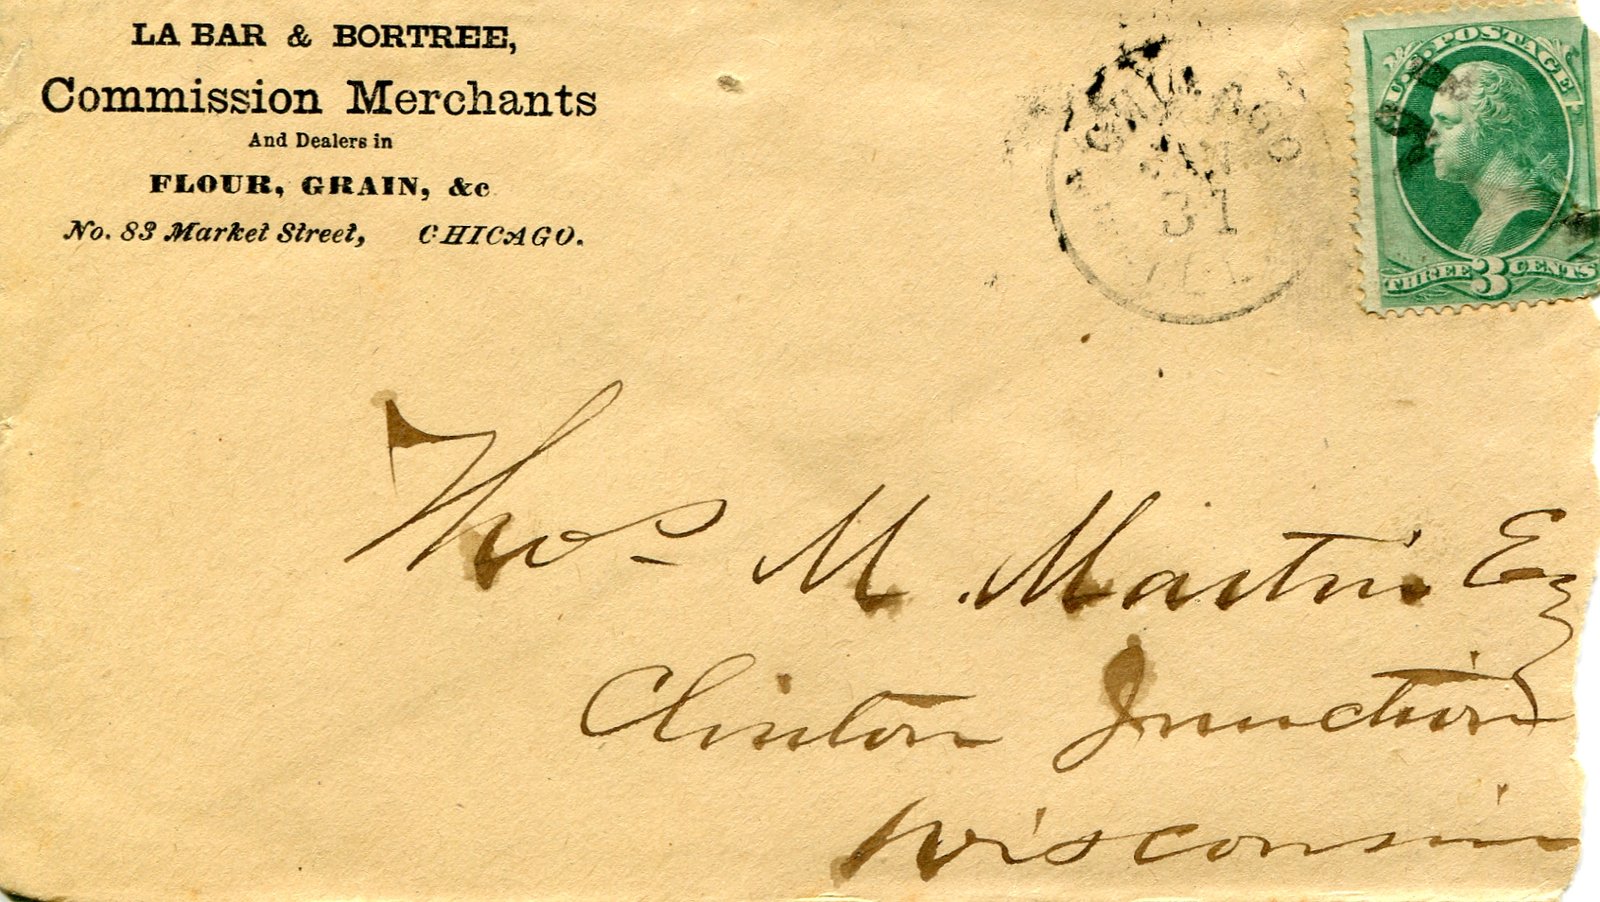 LA BAR & BORTREE,
Commission Merchants
And Dealers in
FLOUR, GRAIN, &c
No. 83 Market Street, CHICAGO.
CHICAGO
JAN
31
ILL
U.S. POSTAGE
THREE 3 CENTS
Thos M. Martin Esq
Clinton Junction
Wisconsin